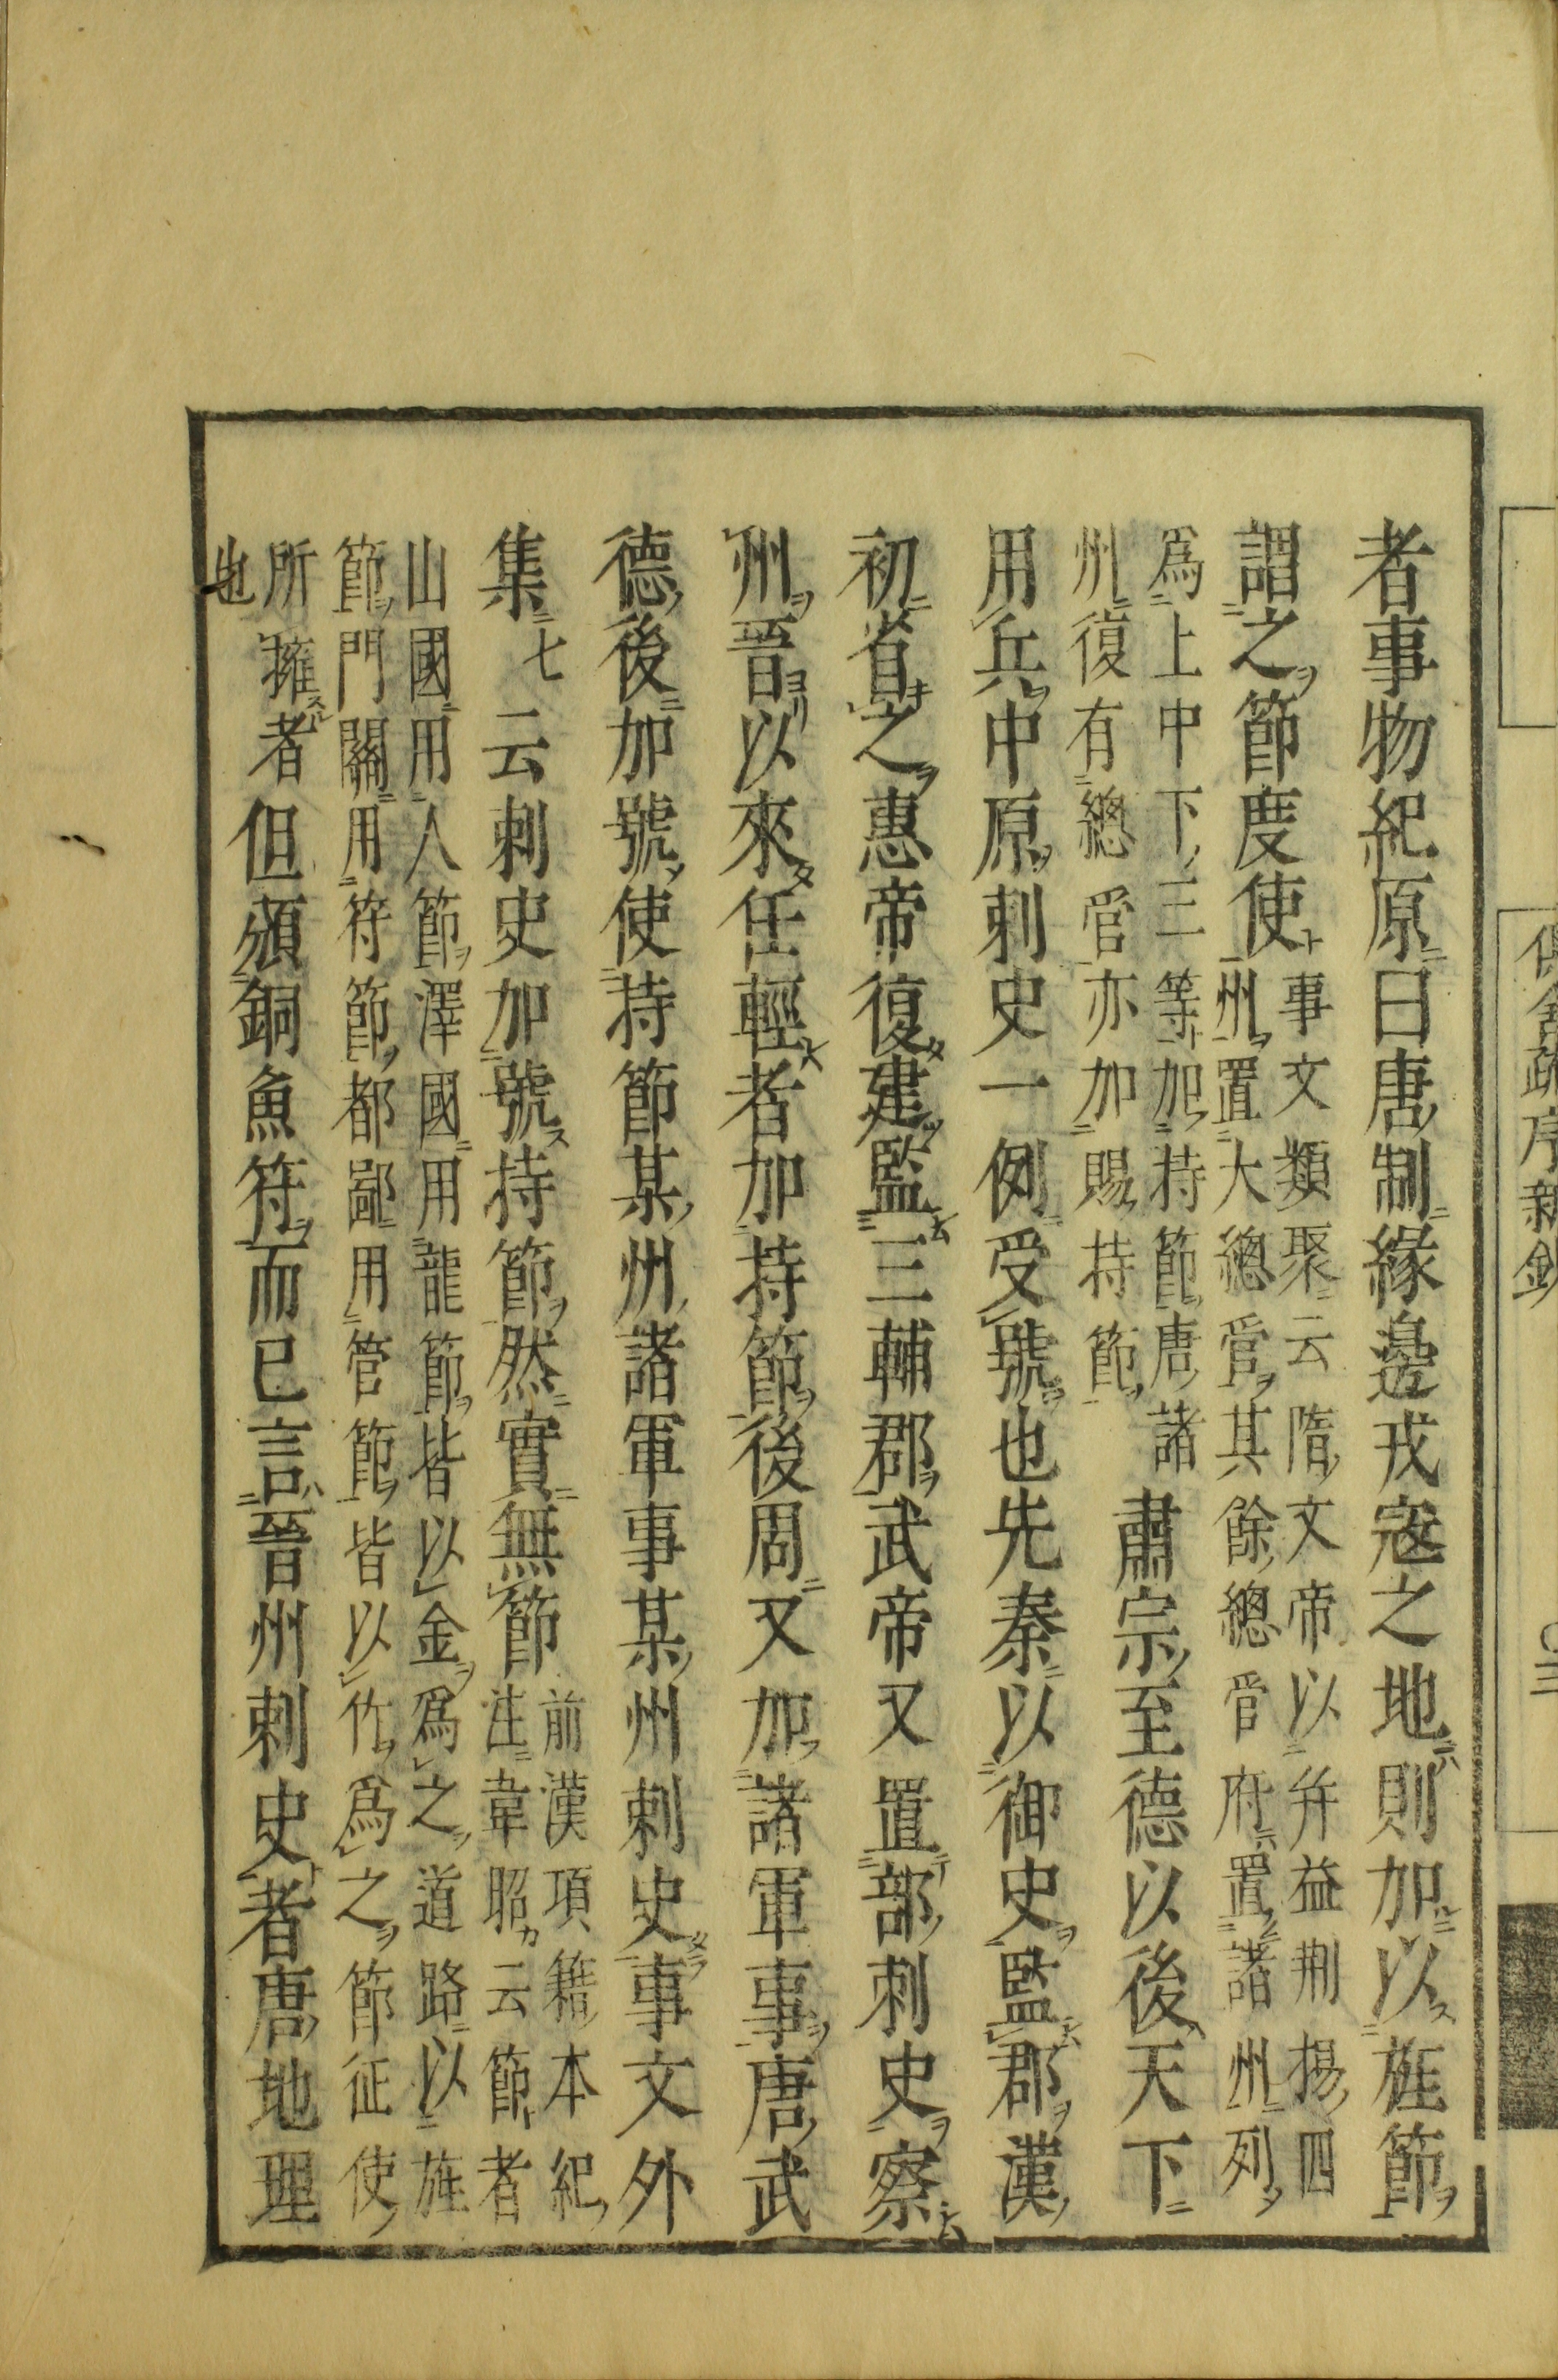 者事物紀原曰唐制緣邊戎寇之地則加以旌節
謂之節度使
事文類聚云隋文帝以并益荊揚四
州置大總管其餘總管府置諸州列
爲上中下三等加持節唐諸
州復有總管亦加賜持節
肅宗至德以後天下
用兵中原刺史一例受號也先秦以御史監郡漢
初省之惠帝復建監三輔郡武帝又置部刺史察
州晉以來任輕者加持節後周又加諸軍事唐武
德後加號使持節某州諸軍事某州刺史事文外
集七云刺史加號持節然實無節
前漢項籍本紀
注韋昭云節者
山國用人節澤國用龍節皆以金爲之道路以旌
節門關用符節都鄙用管節皆以竹爲之節征使
所擁者
也
但頒銅魚符而已言晉州刺史者唐地理